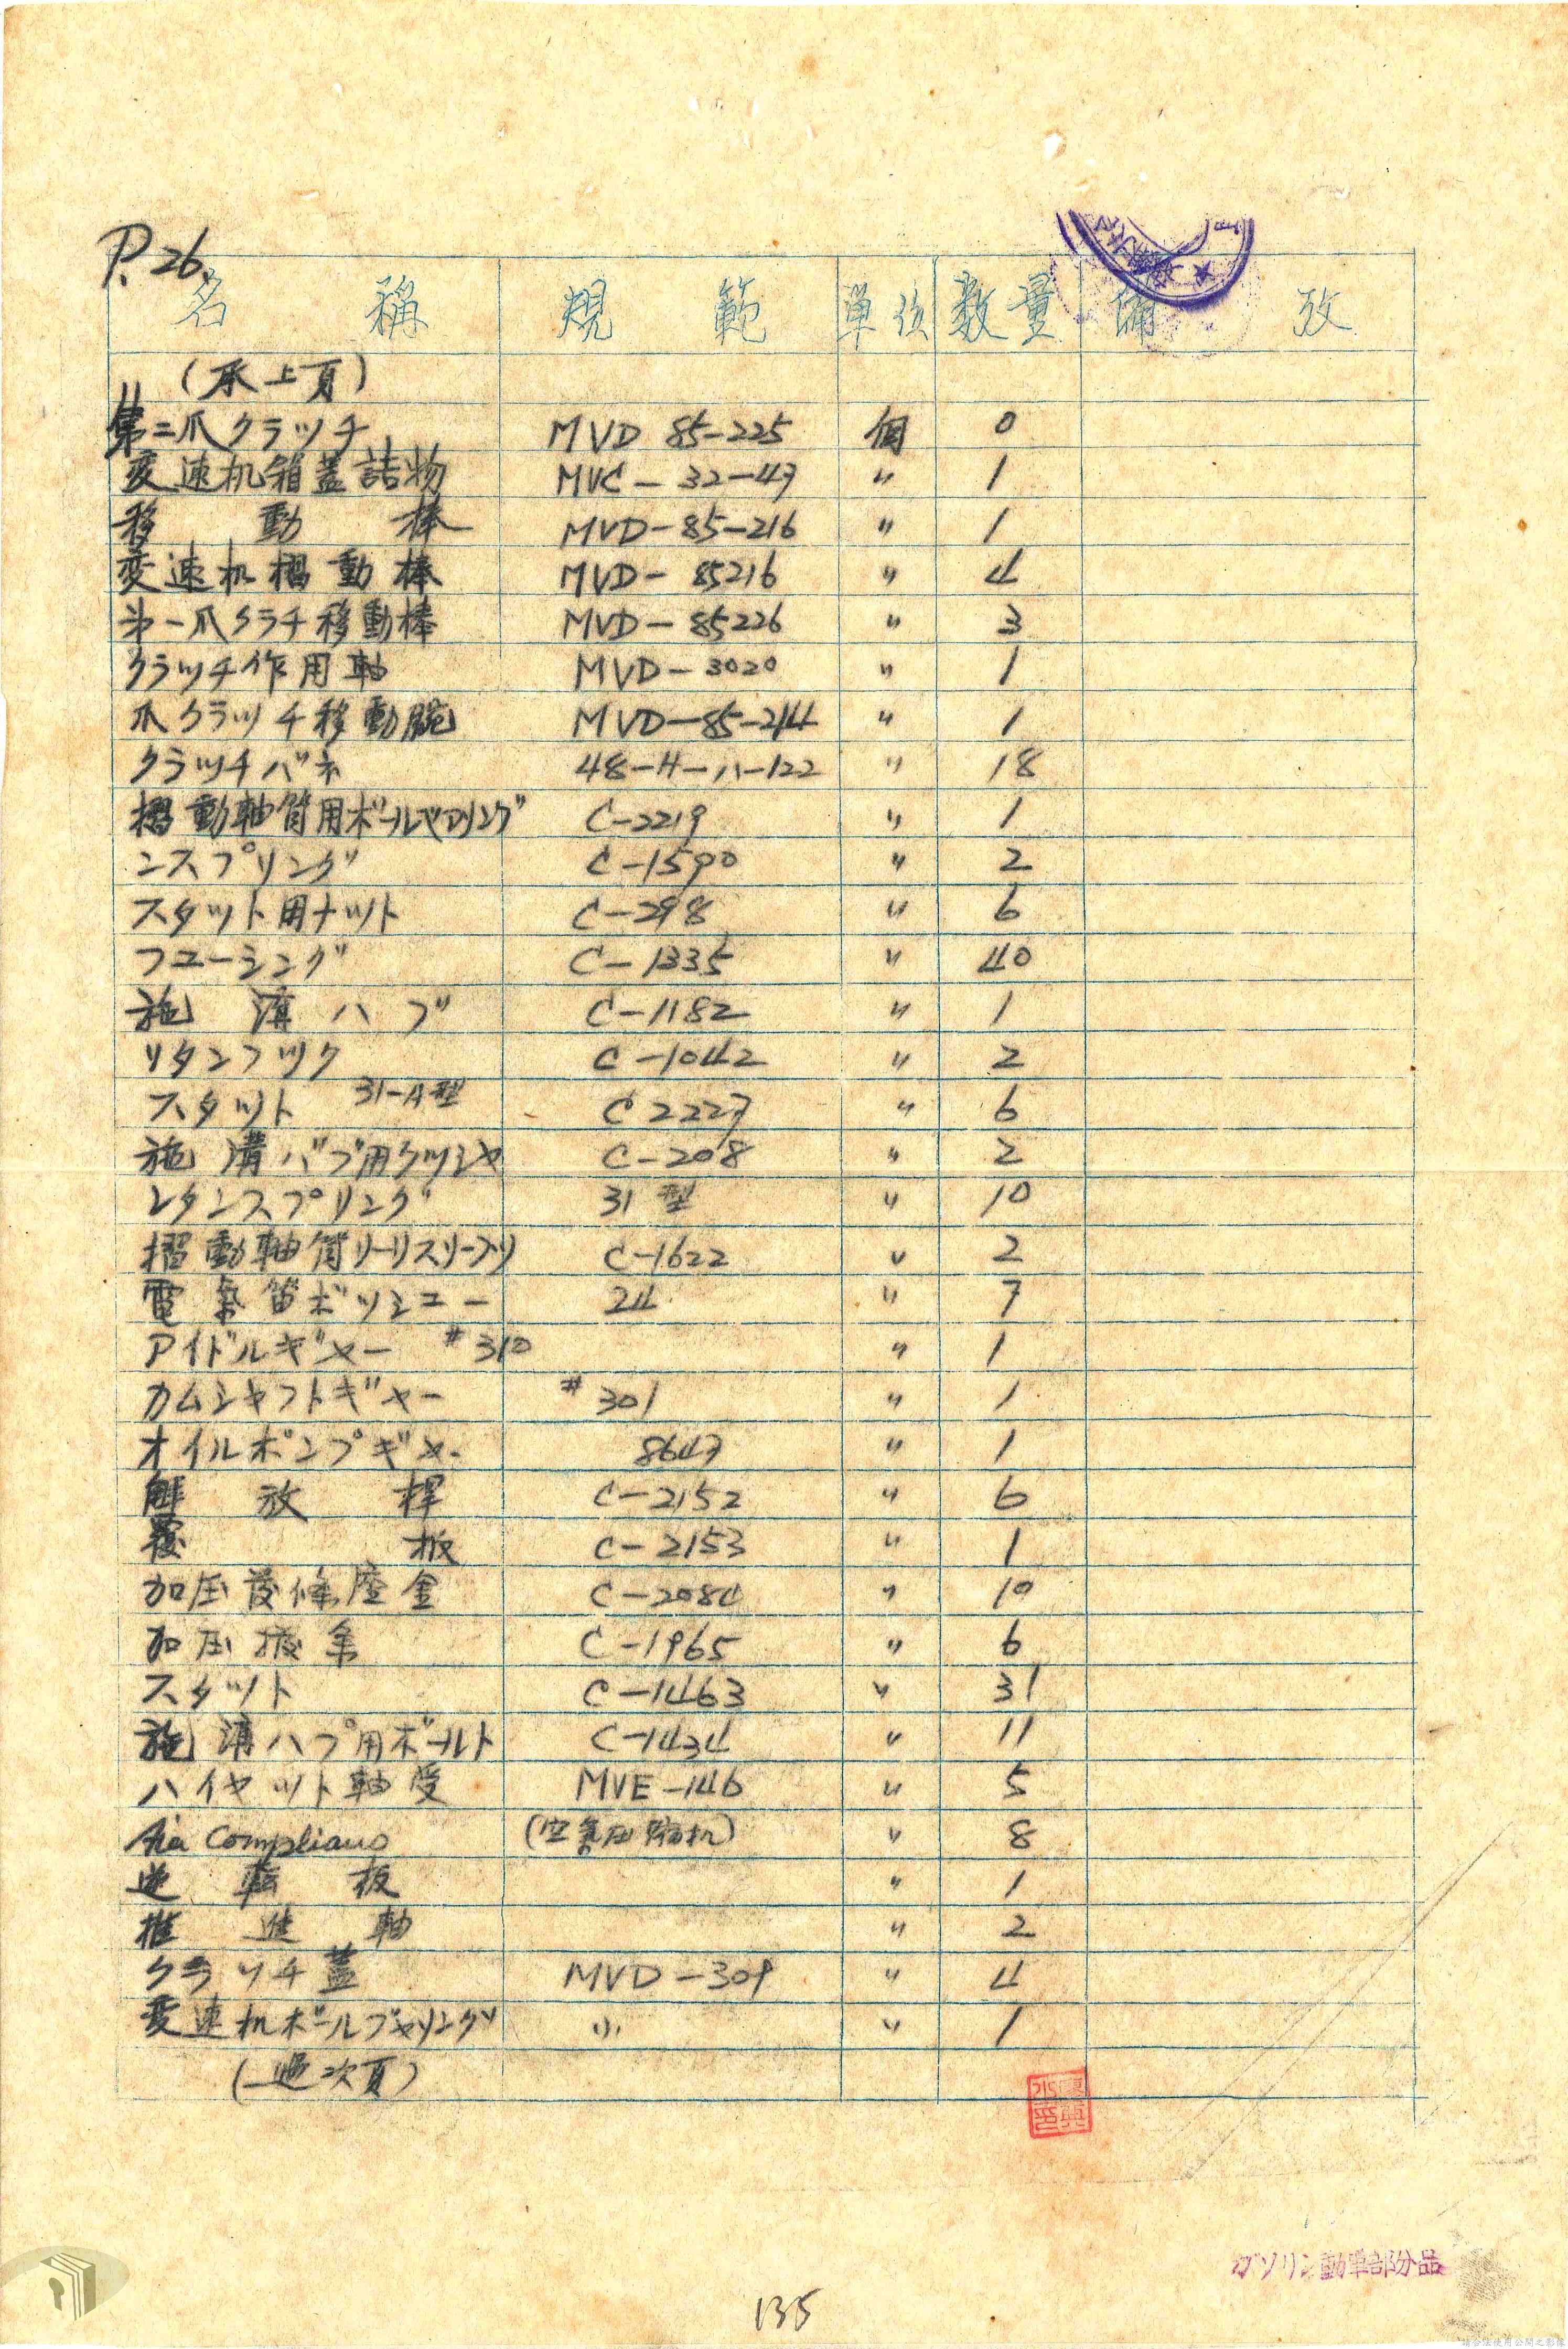 P. 26.
名 稱 規 範 單位 数量 備 攷
(承上頁)
第二爪クラッチ MVD 85-225 個 0
変速机箱蓋詰物 MVC-32-47 〃 1
移動棒 MVD-85-216 〃 1
変速机摺動棒 MVD-85216 〃 4
第一爪クラチ移動棒 MVD-85226 〃 3
クラッチ作用軸 MVD-3020 〃 1
爪クラッチ移動腕 MVD-85-214 〃 1
クラッチバネ 48-H-ハ-122 〃 18
摺動軸筒用ボールベアリング C-2219 〃 1
ンスプリング C-1590 〃 2
スタット用ナット C-298 〃 6
フエーシング C-1335 〃 40
施溝ハブ C-1182 〃 1
リタンフック C-1042 〃 2
スタット 31-A型 C 2227 〃 6
施溝バブ用クッシヤ C-208 〃 2
レタンスプリング 31型 〃 10
摺動軸筒リーリスリーブリ C-1622 〃 2
電気笛ボッシユー 24 〃 7
アイドルギヤー #310 〃 1
カムシヤフトギヤー #301 〃 1
オイルポンプギヤー 8647 〃 1
解放桿 C-2152 〃 6
覆板 C-2153 〃 1
加圧發條座金 C-2084 〃 10
加圧 C-1965 〃 6
スタット C-1463 〃 31
施溝ハブ用ボールト C-1434 〃 11
ハイヤット軸受 MVE-146 〃 5
Air Compliano (空氣圧縮机) 〃 8
逆転板 〃 1
推進軸 〃 2
クラッチ蓋 MVD-309 〃 4
変速机ボールブヤリング 小 〃 1
(過次頁)
ガソリン動車部分品
135